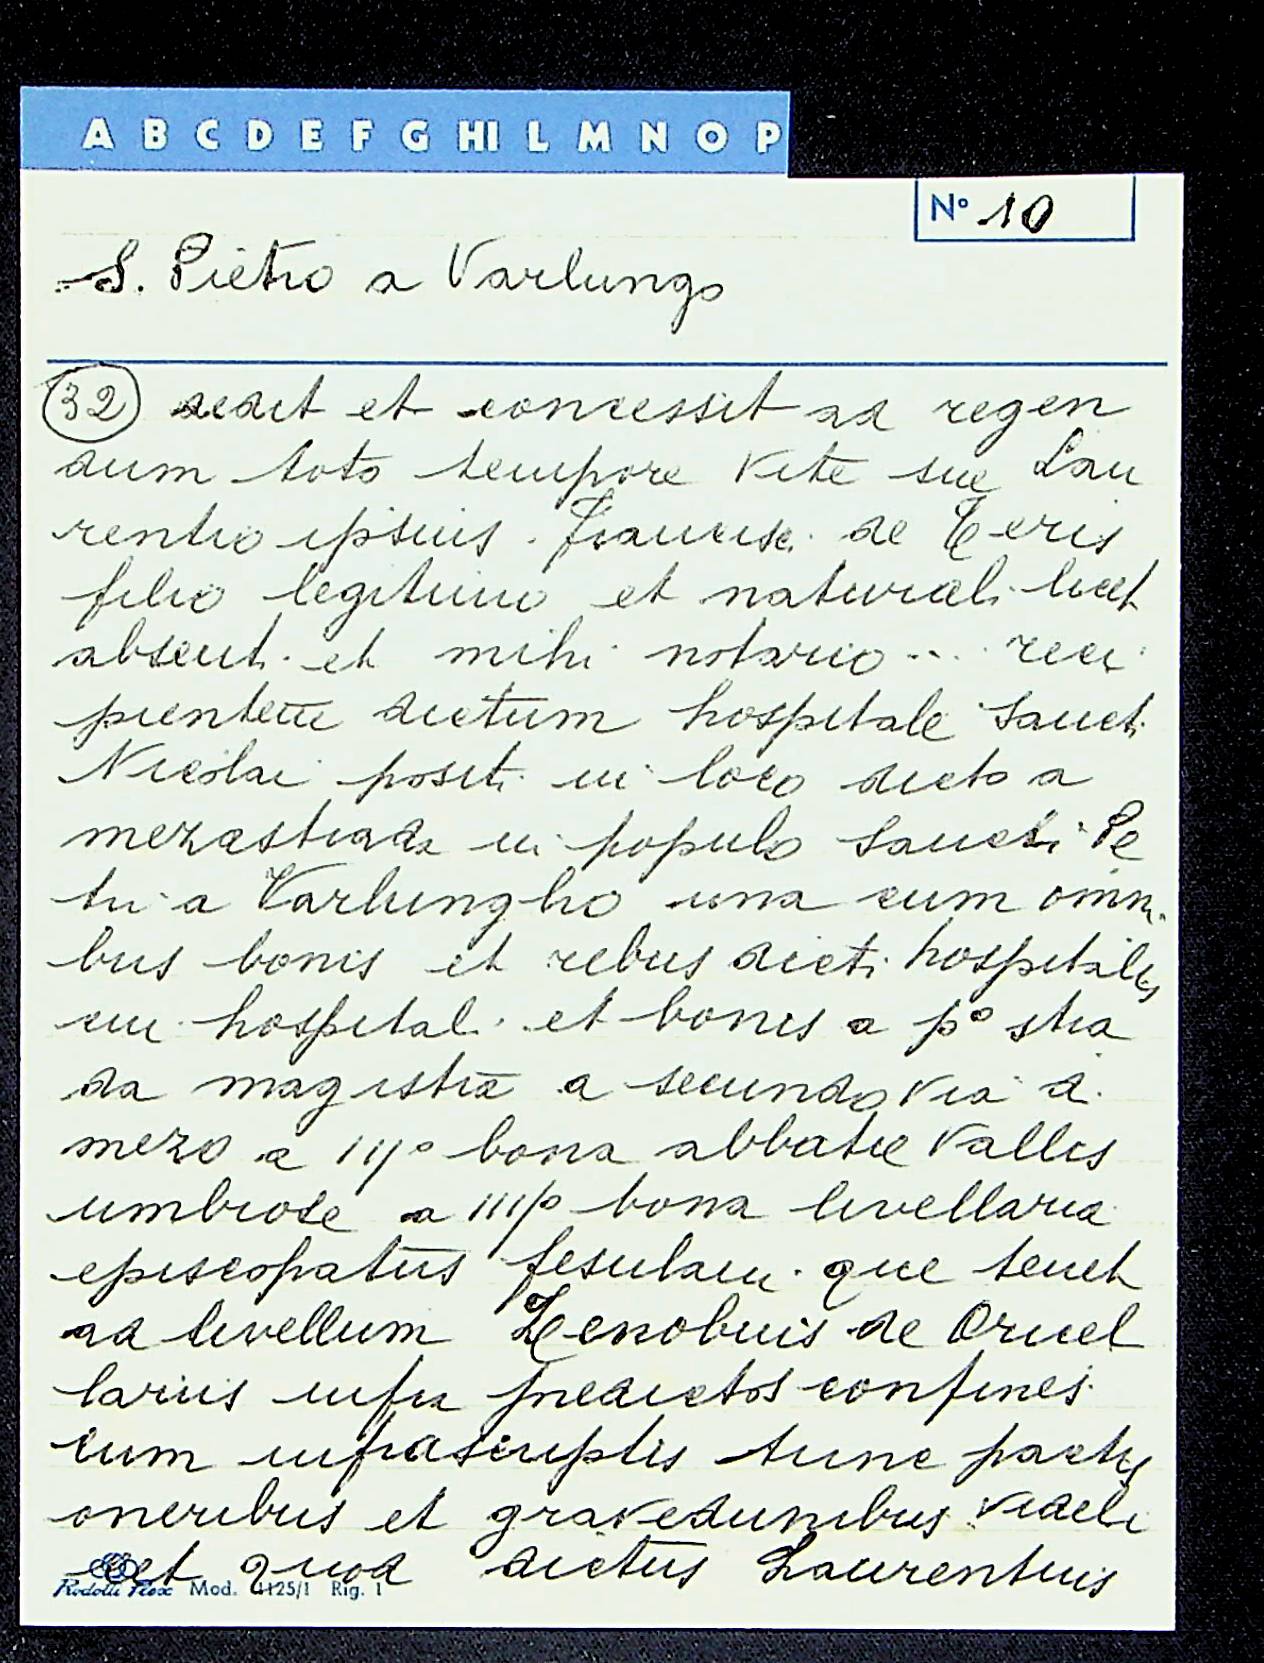 A B C D E F G HI L M N O P
N° 10
S. Pietro a Varlungo
32 dedit et concessit ad regen
dum toto tempore vite sue Lau
rentio ipsius Francisci de Teris
filio legitimo et naturali licet
absenti et mihi notario ... reci
pientem dictum hospitale Sancti
Nicolai positi in loco dicto a
mezastrada in populo Sancti Pe
tri a Varlungho una cum omni
bus bonis et rebus dicti hospitalis
cui hospitali et bonis a p° stra
da magistra a secundo via di
mezo a III° bona abbatie Vallis
umbrose a IIII° bona livellaria
episcopatus fesulani que tenet
ad livellum Zenobius de Oricel
lariis infra predictos confines
cum infrascriptis tunc pactis
oneribus et gravedinibus videli
cet quod dictus Laurentius
Mod. 4125/1 Rig. 1